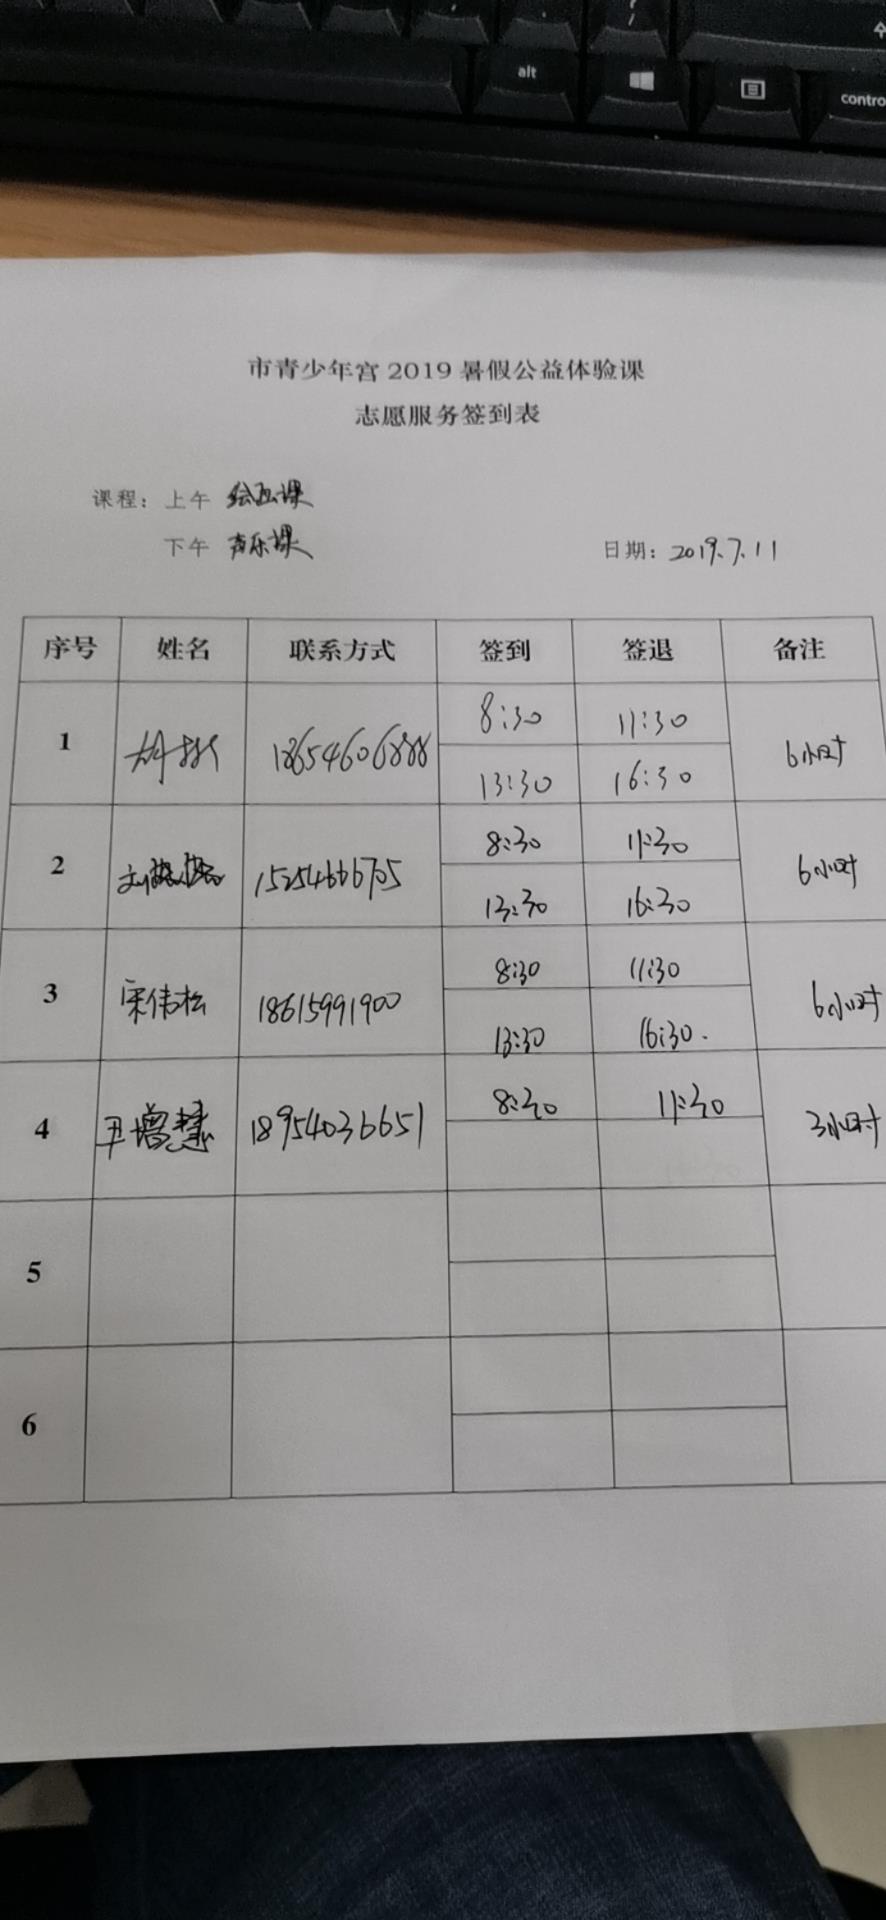 alt
contro
市青少年宫 2019 暑假公益体验课
志愿服务签到表
课程：上午 绘画课
下午 声乐课 日期：2019.7.11
序号 姓名 联系方式 签到 签退 备注
1 18654606888 8:30 11:30 6小时
13:30 16:30
2 15254666705 8:30 11:30 6小时
13:30 16:30
3 宋伟松 18615991900 8:30 11:30 6小时
13:30 16:30.
4 尹增慧 18954036651 8:30 11:30 3小时
5
6